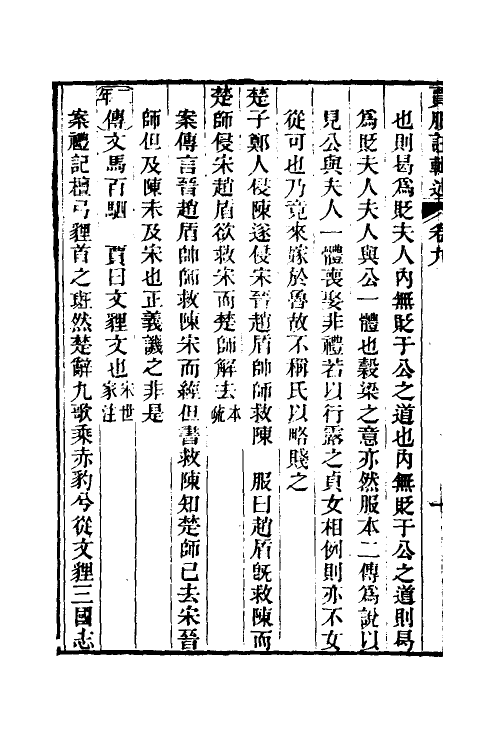 賈服註輯述 卷九
也則曷為貶夫人內無貶于公之道也內無貶于公之道則曷
為貶夫人夫人與公一體也穀梁之意亦然服本二傳為說以
見公與夫人一體喪娶非禮若以行露之貞女相例則亦不女
從可也乃竟來嫁於魯故不稱氏以略賤之
楚子鄭人侵陳遂侵宋晉趙盾帥師救陳 服曰趙盾既救陳而
楚師侵宋趙盾欲救宋而楚師解去本疏
案傳言晉趙盾帥師救陳宋而經但書救陳知楚師已去宋晉
師但及陳未及宋也正義譏之非是
二年傳文馬百駟 賈曰文貍文也宋世家注
案禮記檀弓貍首之班然楚辭九歌乘赤豹兮從文貍三國志